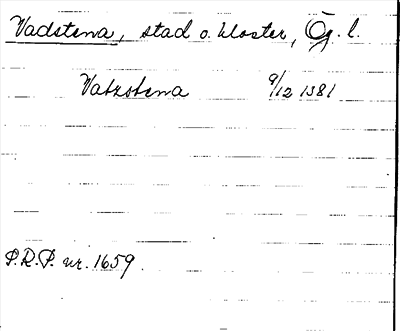 Vadstena, stad o. kloster, Ög. l.
Vatzstena 9/12 1381
P.R.P. nr. 1659.